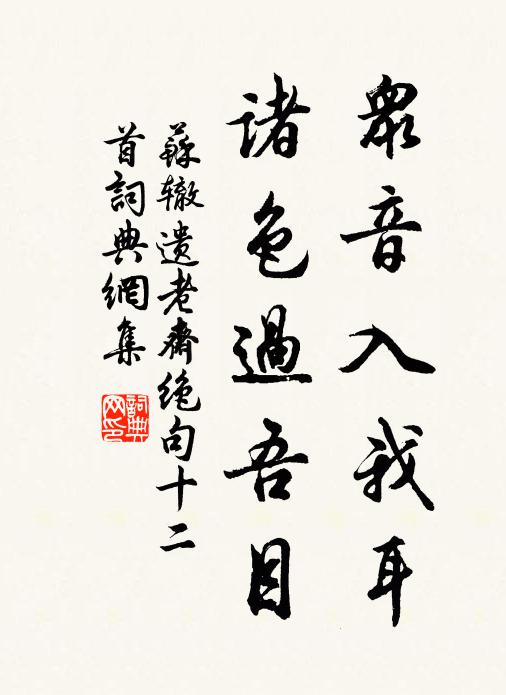 眾音入我耳
諸色過吾目
蘇辙遺老齋绝句十二
首詞典網集
詞典
网印